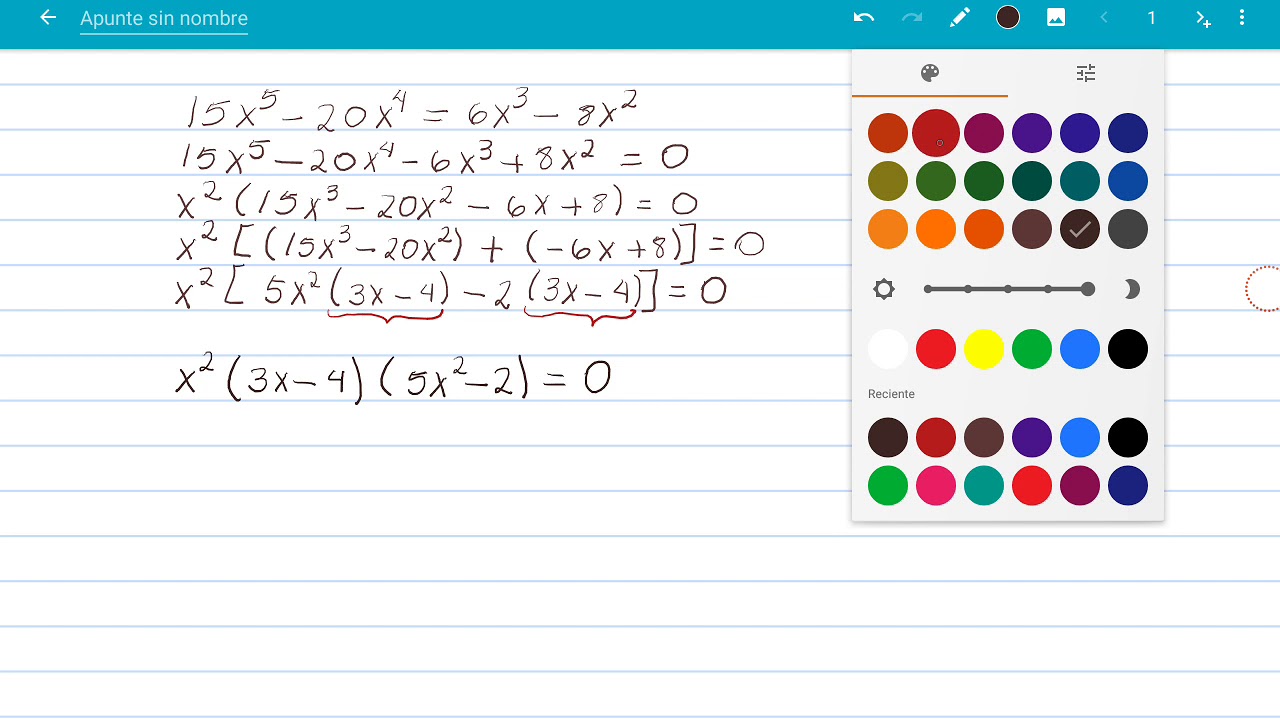 Apunte sin nombre
1
15x⁵ − 20x⁴ = 6x³ − 8x²
15x⁵ − 20x⁴ − 6x³ + 8x² = 0
x² (15x³ − 20x² − 6x + 8) = 0
x² [(15x³ − 20x²) + (−6x + 8)] = 0
x² [5x² (3x − 4) − 2 (3x − 4)] = 0
x² (3x − 4) (5x² − 2) = 0
Reciente